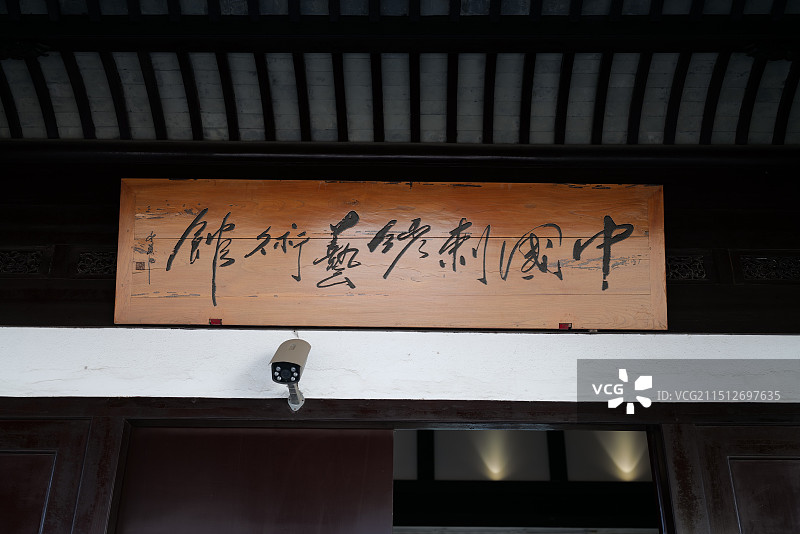 中國刺繡藝術館
VCG ID:VCG211512697635